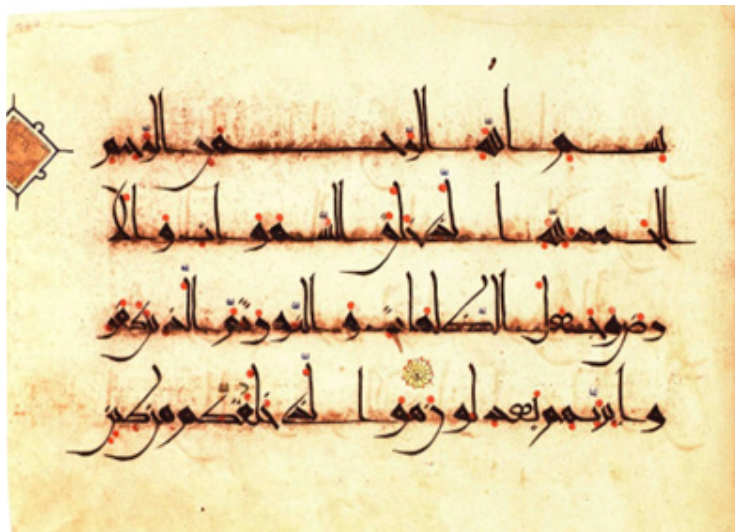 بسم الله الرحمن الرحيم
الحمد لله الذي خلق السموات والا
رض وجعل الظلمات والنور ثم الذين كفرو
ا بربهم يعدلون هو الذي خلقكم من طين